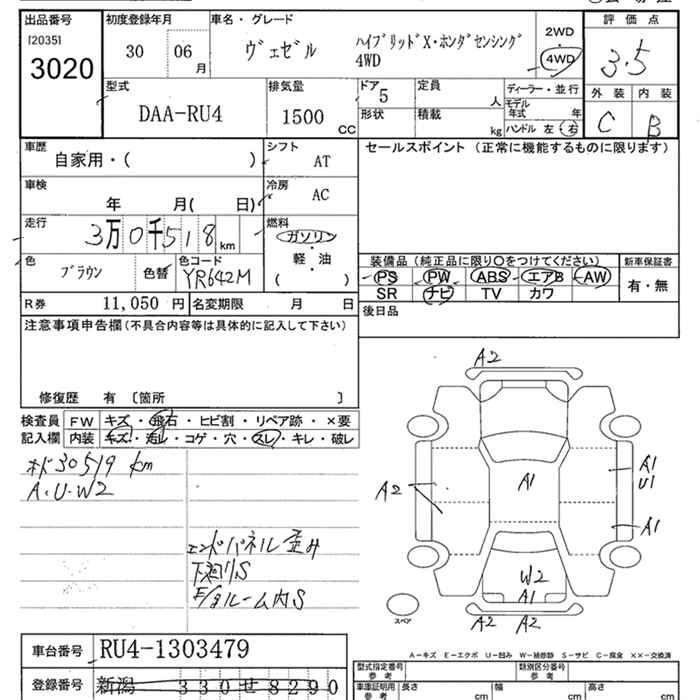 出品番号 初度登録年月 車名・グレード 評価点
[2035] 3020
30 06 月
ヴェゼル ハイブリッドX・ホンダセンシング 4WD
2WD ・ 4WD
3.5
外装 内装
C B
型式 DAA-RU4
排気量 1500 CC
ドア 5
形状
定員 人
積載 kg
ディーラー・並行
モデル年式 年
ハンドル 左・右
車歴 自家用・( )
シフト AT
セールスポイント (正常に機能するものに限ります)
車検 年 月( 日)
冷房 AC
走行 3万0千518km
燃料 ガソリン・軽・油 ( )
色 ブラウン 色替 色コード YR642M
装備品 (純正品に限り○をつけてください) 新車保証書
PS PW ABS エアB AW
SR ナビ TV カワ
有・無
R券 11,050 円 名変期限 月 日
後日品
注意事項申告欄(不具合内容等は具体的に記入して下さい)
修復歴 有 〔箇所 〕
検査員記入欄
FW キズ・飛石・ヒビ割・リペア跡・×要
内装 キズ・汚レ・コゲ・穴・スレ・キレ・破レ
30519 km
A・U・W2
エンドパネル歪み
下廻りS
E/gルーム内S
A2
A2
A1
A1
U1
A1
W2
A1
A2 A2
スペア
A-キズ E-エクボ U-凹み W-補修跡 S-サビ C-腐食 XX-交換済
車台番号 RU4-1303479
登録番号 新潟 330せ8290
型式指定番号 参考
類別区分番号 参考
車庫証明用 参考
長さ cm 幅 cm 高さ cm